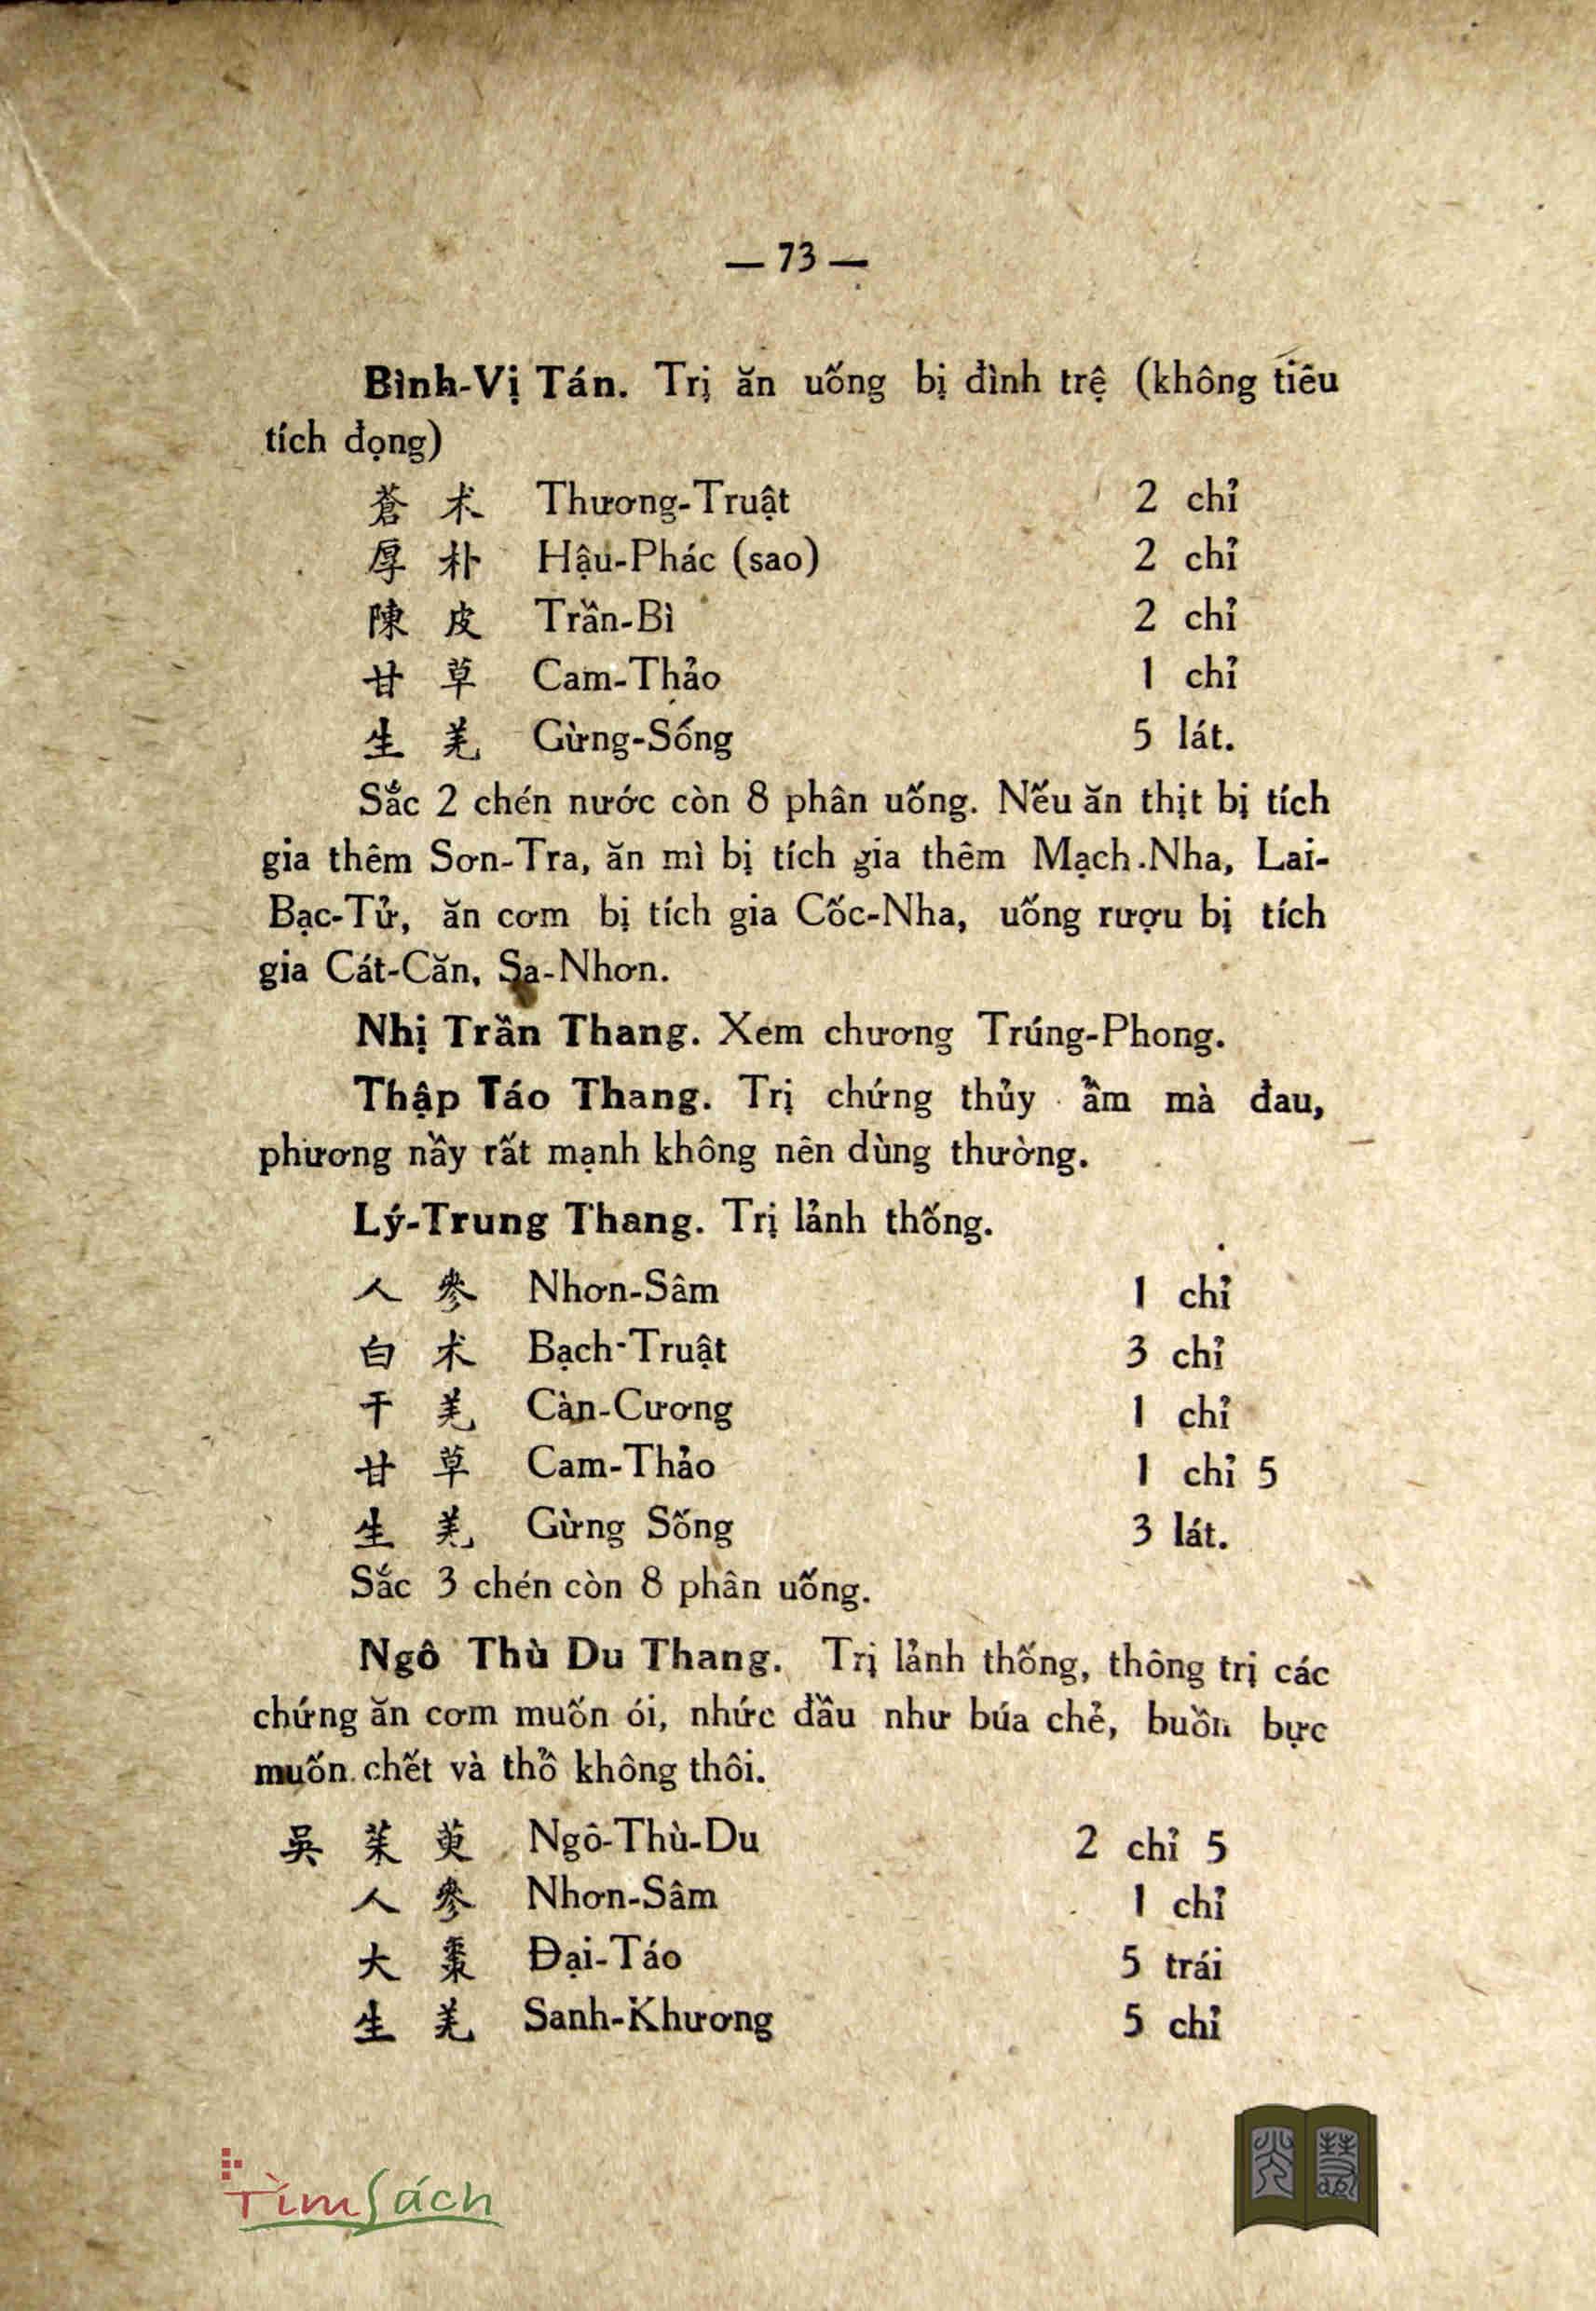 — 73 —
Bình-Vị Tán. Trị ăn uống bị đình trệ (không tiêu
tích đọng)
蒼 术 Thương-Truật 2 chỉ
厚 朴 Hậu-Phác (sao) 2 chỉ
陳 皮 Trần-Bì 2 chỉ
甘 草 Cam-Thảo 1 chỉ
生 羌 Gừng-Sống 5 lát.
Sắc 2 chén nước còn 8 phân uống. Nếu ăn thịt bị tích
gia thêm Sơn-Tra, ăn mì bị tích gia thêm Mạch-Nha, Lai-
Bạc-Tử, ăn cơm bị tích gia Cốc-Nha, uống rượu bị tích
gia Cát-Căn, Sa-Nhơn.
Nhị Trần Thang. Xem chương Trúng-Phong.
Thập Táo Thang. Trị chứng thủy ẩm mà đau,
phương nầy rất mạnh không nên dùng thường.
Lý-Trung Thang. Trị lảnh thống.
人 參 Nhơn-Sâm 1 chỉ
白 术 Bạch-Truật 3 chỉ
干 羌 Càn-Cương 1 chỉ
甘 草 Cam-Thảo 1 chỉ 5
生 羌 Gừng Sống 3 lát.
Sắc 3 chén còn 8 phân uống.
Ngô Thù Du Thang. Trị lảnh thống, thông trị các
chứng ăn cơm muốn ói, nhức đầu như búa chẻ, buồn bực
muốn chết và thổ không thôi.
吳 茱 萸 Ngô-Thù-Du 2 chỉ 5
人 參 Nhơn-Sâm 1 chỉ
大 棗 Đại-Táo 5 trái
生 羌 Sanh-Khương 5 chỉ
TìmSách